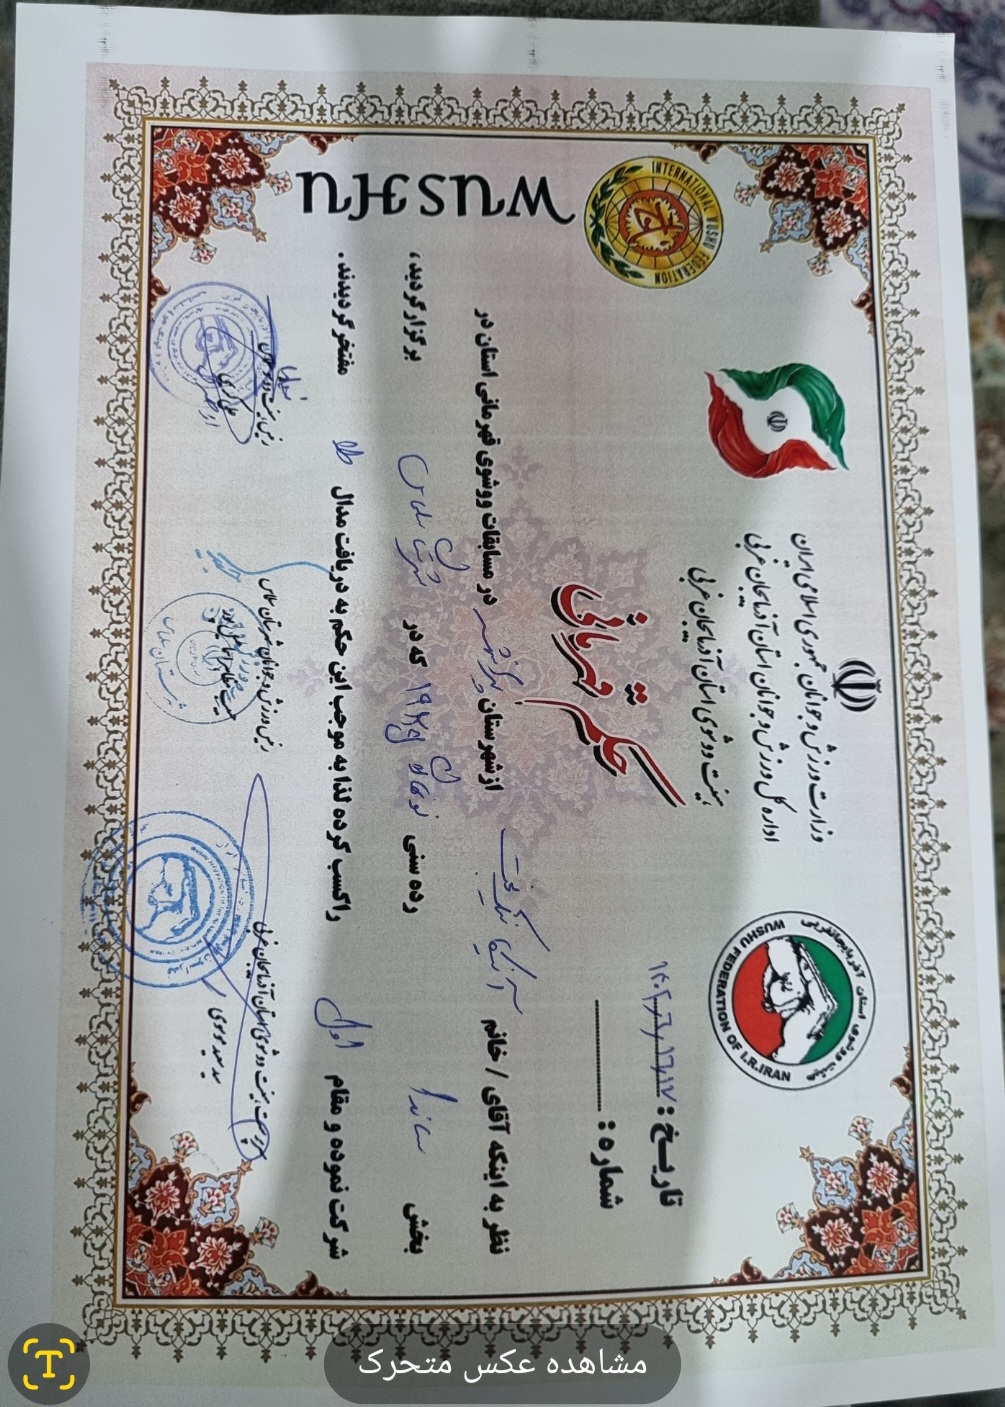 وزارت ورزش و جوانان جمهوری اسلامی ایران
اداره کل ورزش و جوانان استان آذربایجان غربی
هیئت ووشوی استان آذربایجان غربی
INTERNATIONAL WUSHU FEDERATION
WUSHU
هیئت ووشوی استان آذربایجانغربی
WUSHU FEDERATION OF I.R.IRAN
تاریخ :
شماره :
حکم قهرمانی
نظر به اینکه آقای / خانم از شهرستان پیرانشهر در مسابقات ووشوی قهرمانی استان در
بخش ساندا رده سنی نونهالان که در شهرستان سلماس برگزار گردید،
شرکت نموده و مقام اول را کسب کرده لذا به موجب این حکم به دریافت مدال طلا مفتخر گردیدند.
سرپرست هیئت ووشوی استان آذربایجان غربی
سید مجید موسوی
رئیس ورزش و جوانان شهرستان سلماس
رئیس هیئت ووشو سلماس
مشاهده عکس متحرک